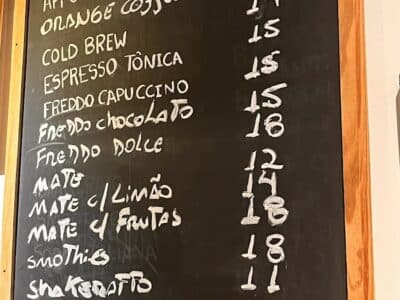 ORANGE COFFEE
COLD BREW
ESPRESSO TÔNICA 15
FREDDO CAPUCCINO 15
FREDDO CHOCOLATO 15
FREDDO DOLCE 18
MATE 12
MATE C/LIMÃO 14
MATE C/ FRUTAS 18
SMOTHIES 18
SHAKERATTO 11